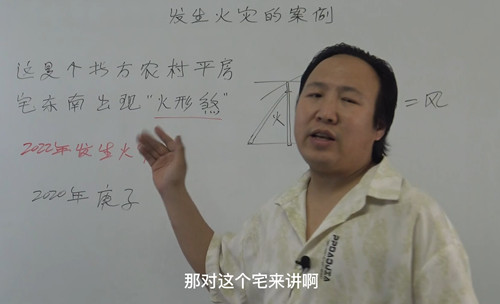 发生火灾的案例
这是个北方农村平房
宅东南出现“火形煞”
火 = 风
2022年发生火
2020年 庚子
APPDAQUJA
那对这个宅来讲啊